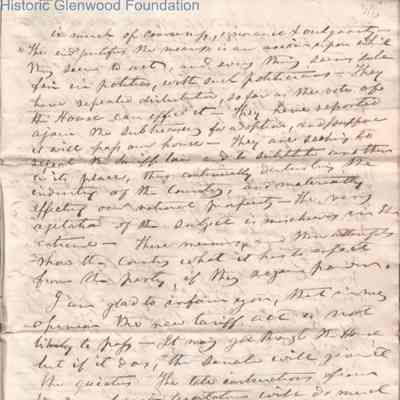 Historic Glenwood Foundation
is much of coarseness, ignorance & outgoing
The end justifies the means is an axiom upon which
they seem to act, and every thing seems
fair in politics, with such politicians – They
have repealed distribution, so far as the vote of
the House can effect it – They have reported
again the Subtreasury for adoption, and I suppose
it will pass our house – They are seeking to
repeal the tariff law and to substitute another
in its place, thus continually disturbing the
industry of the Country, and materially
effecting our national prosperity – the very
agitation of the subject is mischievous in the
extreme – These measures, and their attempts
show the Country what it has to expect
from the party, if they again power.
I am glad to inform you, that in my
opinion the new tariff act is not
likely to pass – It may get through the House
but if it does, the Senate will give it
the quietus. The late instructions of our
legislature will do much